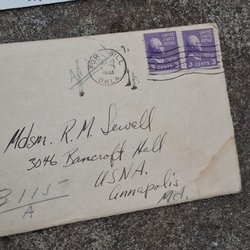 1941
OKLA
3 CENTS 3
3 CENTS 3
Mdsm. R. M. Sewell
3046 Bancroft Hall
USNA.
Annapolis
Md.
3115
A